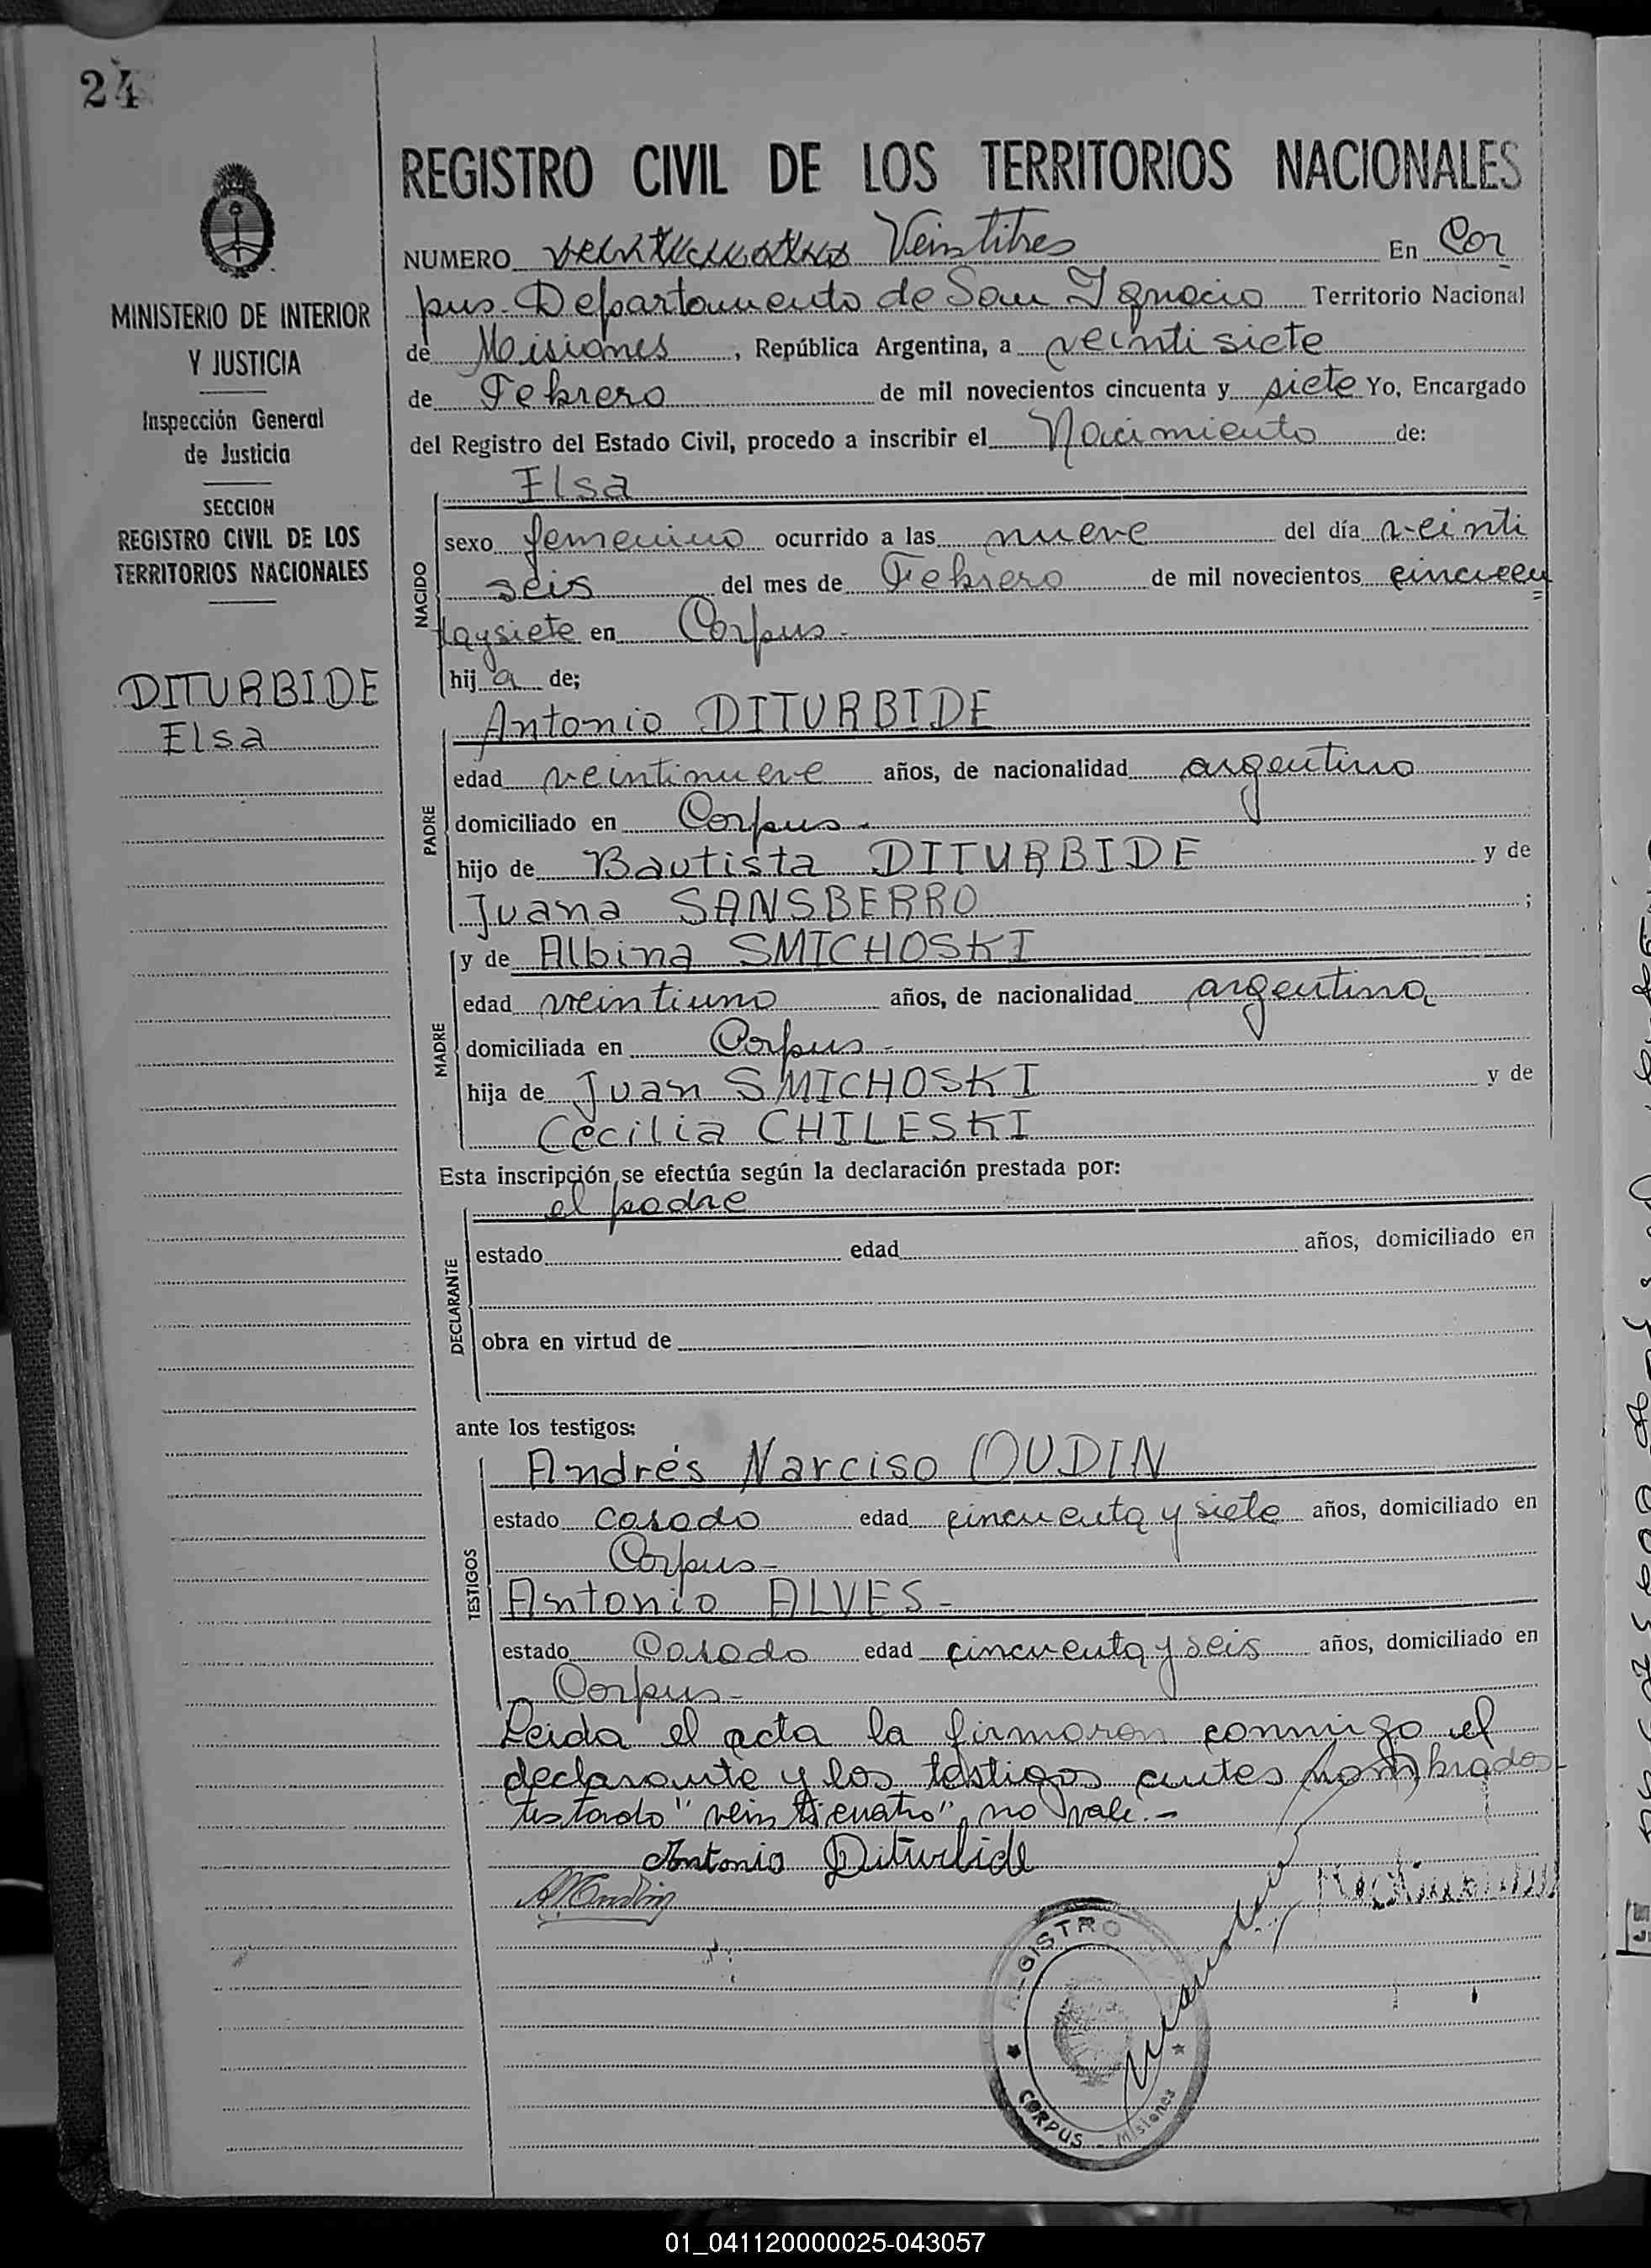 24
REGISTRO CIVIL DE LOS TERRITORIOS NACIONALES
NUMERO veinticuatro Veintitres En Cor
pus. Departamento de San Ignacio Territorio Nacional
de Misiones, República Argentina, a veintisiete
de Febrero de mil novecientos cincuenta y siete Yo, Encargado
del Registro del Estado Civil, procedo a inscribir el Nacimiento de:
MINISTERIO DE INTERIOR
Y JUSTICIA
Inspección General
de Justicia
SECCION
REGISTRO CIVIL DE LOS
TERRITORIOS NACIONALES
DITURBIDE
Elsa
NACIDO
Elsa
sexo femenino ocurrido a las nueve del día veinti
seis del mes de Febrero de mil novecientos cincuen
taysiete en Corpus.-
hija de;
PADRE
Antonio DITURBIDE
edad veintinueve años, de nacionalidad argentino
domiciliado en Corpus.-
hijo de Bautista DITURBIDE y de
Juana SANSBERRO ;
MADRE
y de Albina SMICHOSKI
edad veintiuno años, de nacionalidad argentina
domiciliada en Corpus-
hija de Juan SMICHOSKI y de
Cecilia CHILESKI
Esta inscripción se efectúa según la declaración prestada por:
DECLARANTE
el padre
estado edad años, domiciliado en
obra en virtud de
ante los testigos:
TESTIGOS
Andrés Narciso OUDIN
estado casado edad cincuenta y siete años, domiciliado en
Corpus-
Antonio ALVES-
estado Casado edad cincuenta y seis años, domiciliado en
Corpus-
Leida el acta la firmaron conmigo el
declarante y los testigos antes nombrados
testado "veinticuatro" no vale.-
Antonio Diturbide
REGISTRO
CORPUS - Misiones
01_041120000025-043057